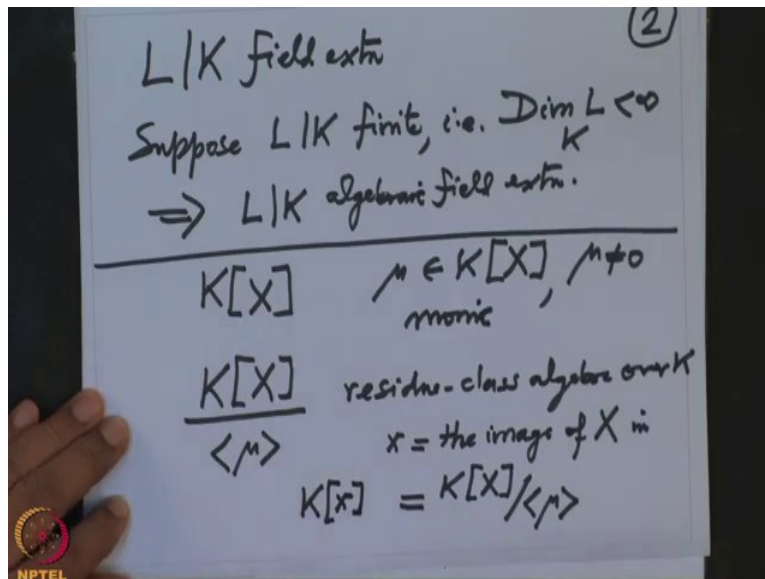 (2)
L|K field extn
Suppose L|K finite, i.e. Dim_K L < ∞
⇒ L|K algebraic field extn.
K[X] μ ∈ K[X], μ ≠ 0
monic
K[X]/<μ> residue-class algebra over K
x = the image of X in
K[x] = K[X]/<μ>
NPTEL